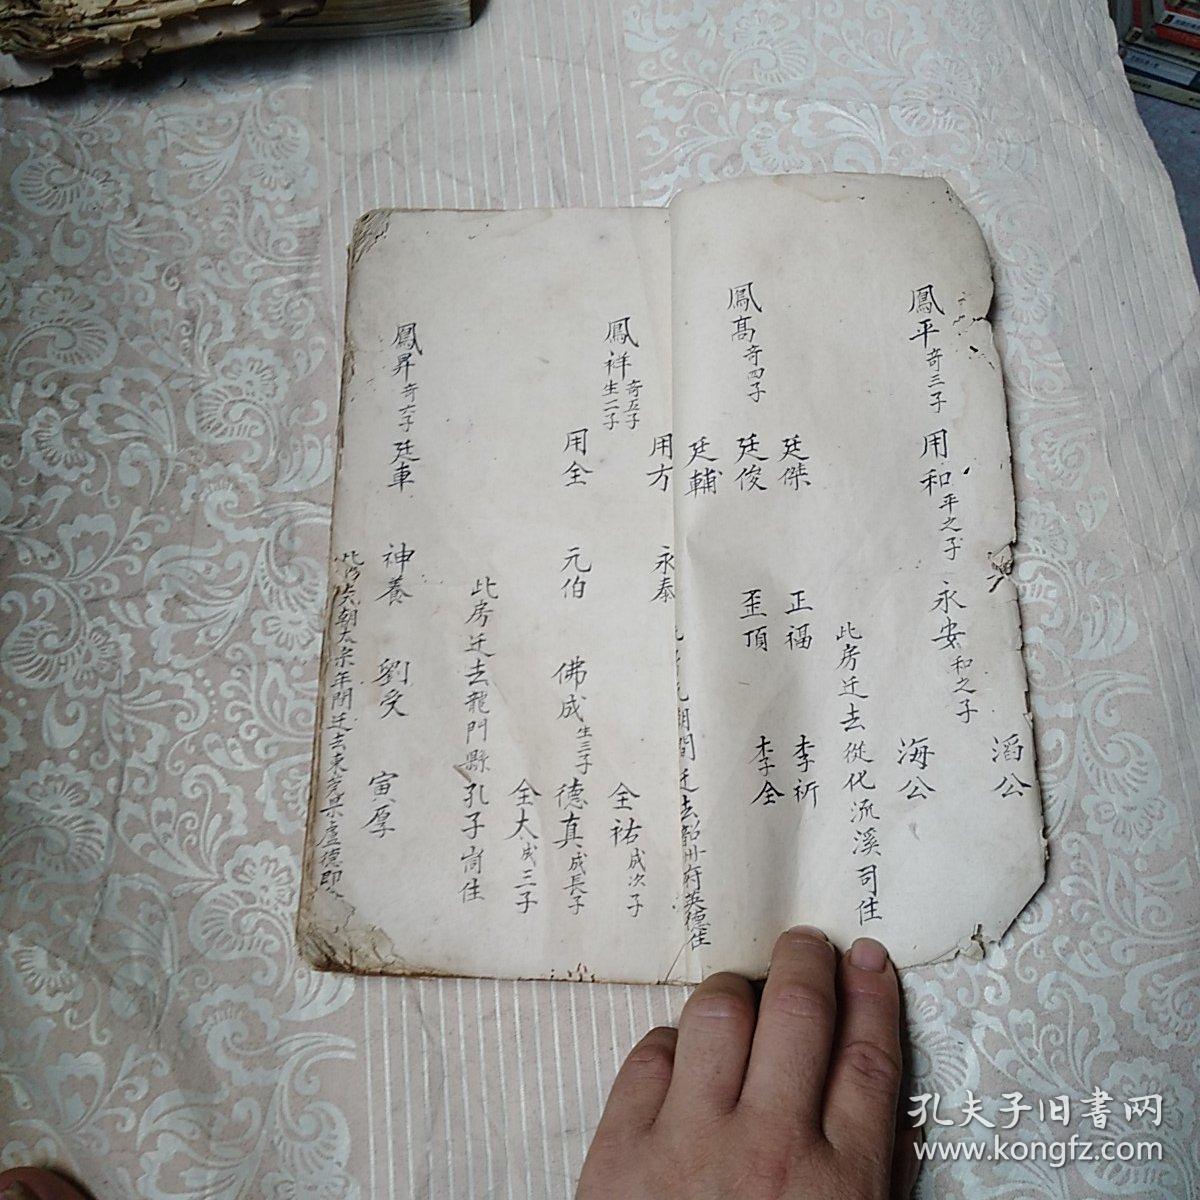 滔公
鳳平奇三子 用和平之子 永安和之子
海公
此房迁去從化流溪司住
廷傑 正福 李祈
鳳高奇四子 廷俊 歪頂 李全
廷輔
間迁去韶州府英德住
用方 永泰
鳳祥奇五子生二子
全祐成次子
用全 元伯 佛成生三子 德真成長子
全大成三子
此房迁去龍門縣孔子崗住
鳳昇奇六子 廷車 神養 劉受 寅厚
年間迁去東
孔夫子旧書网
www.kongfz.com